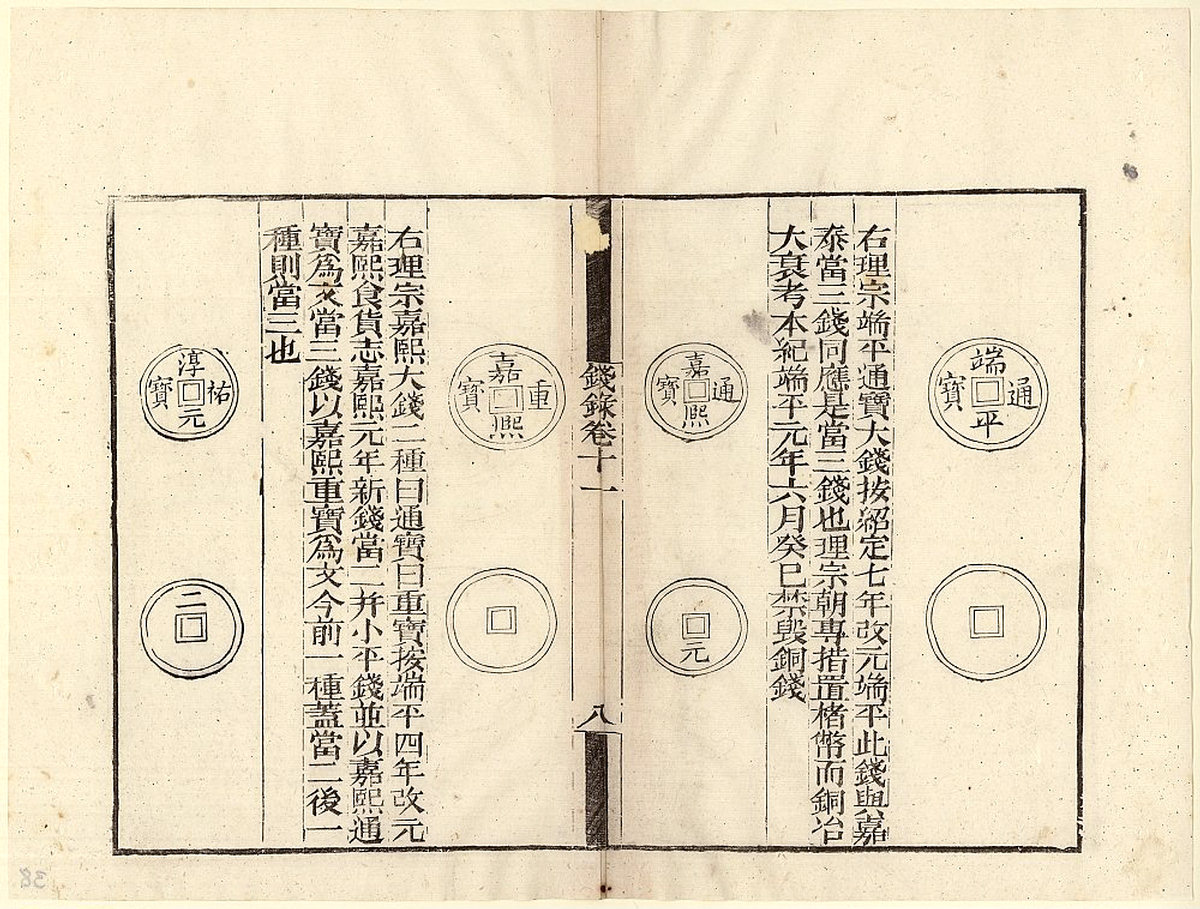 端平通寶
右理宗端平通寶大錢按紹定七年改元端平此錢與嘉
泰當三錢同應是當三錢也理宗朝專措置楮幣而銅冶
大衰考本紀端平元年六月癸巳禁毀銅錢
嘉熙通寶
元
錢錄卷十一
八
嘉熙重寶
右理宗嘉熙大錢二種曰通寶曰重寶按端平四年改元
嘉熙食貨志嘉熙元年新錢當二并小平錢並以嘉熙通
寶爲文當三錢以嘉熙重寶爲文今前一種蓋當二後一
種則當三也
淳祐元寶
二
38